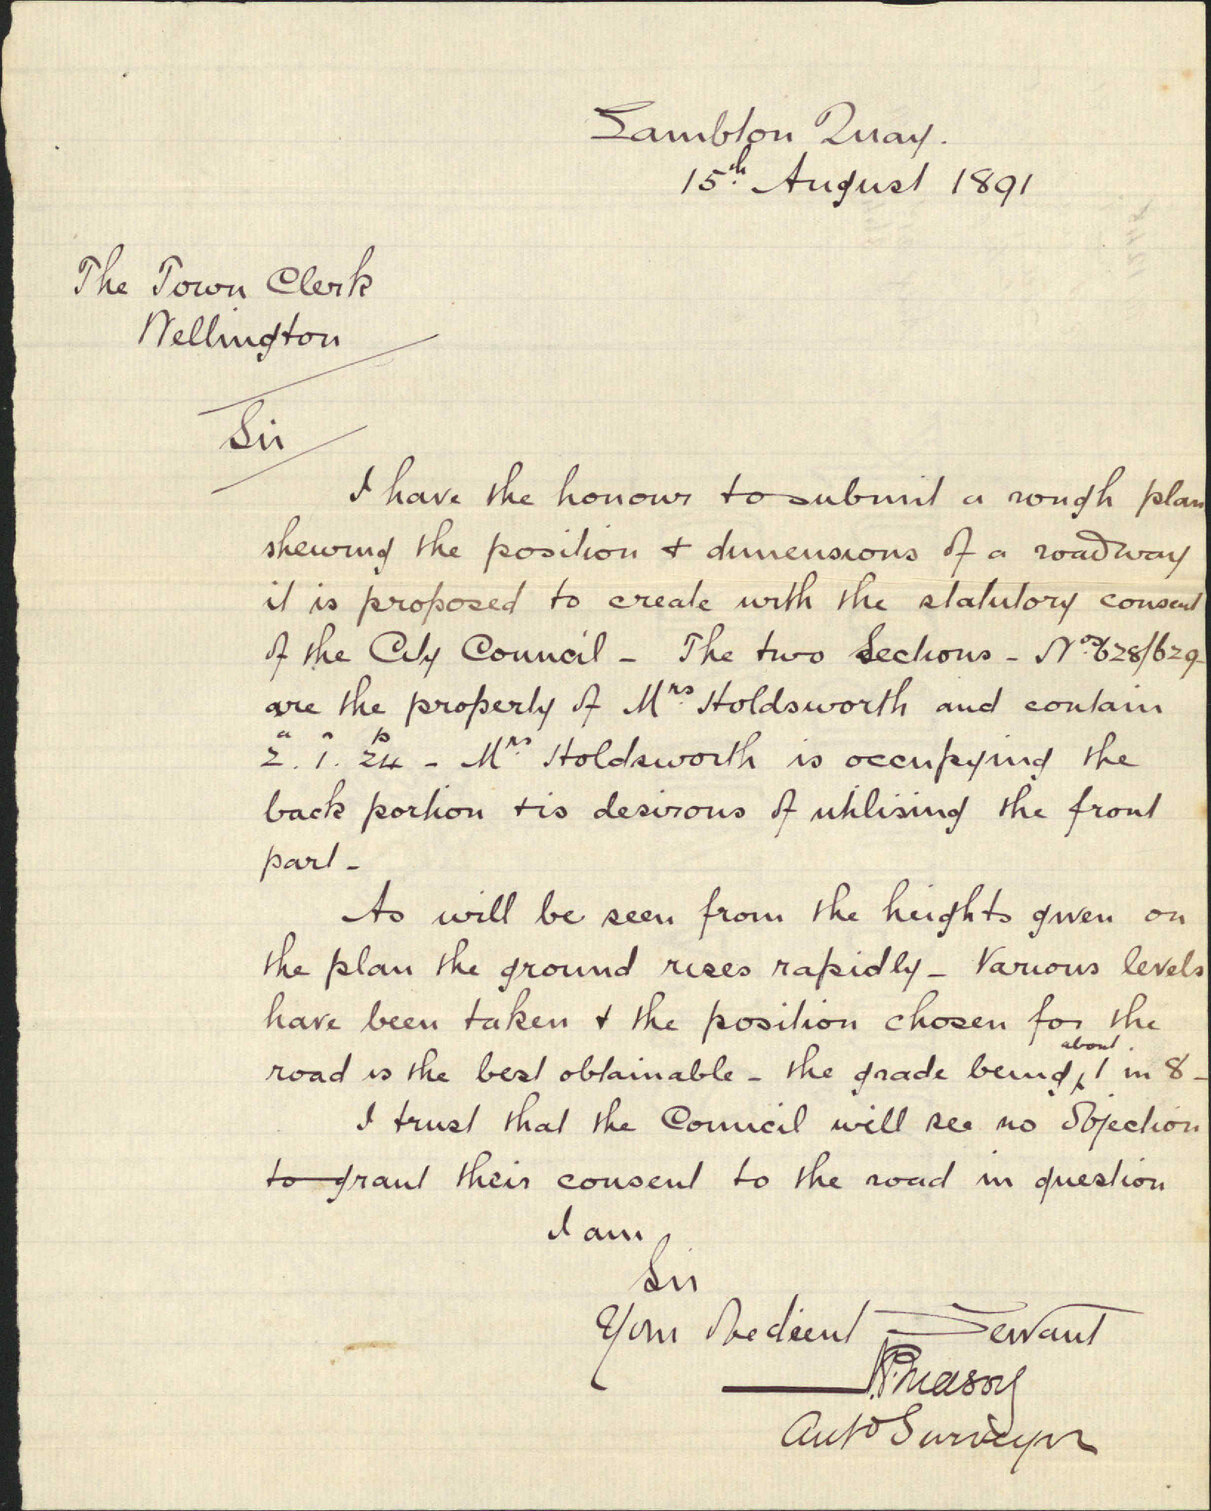 Lambton Quay.
15th August 1891
The Town Clerk
Wellington
Sir
I have the honour to submit a rough plan
shewing the position & dimensions of a roadway
it is proposed to create with the statutory consent
of the City Council - The two Sections - Nos. 628/629
are the property of Mrs. Holdsworth and contain
2a. 1r. 24p - Mrs. Holdsworth is occupying the
back portion & is desirous of utilising the front
part -
As will be seen from the heights given on
the plan the ground rises rapidly - Various levels
have been taken & the position chosen for the
road is the best obtainable - the grade being about 1 in 8 -
I trust that the Council will see no objection
to grant their consent to the road in question
I am
Sir
Your obedient Servant
Mason
Autd Surveyor